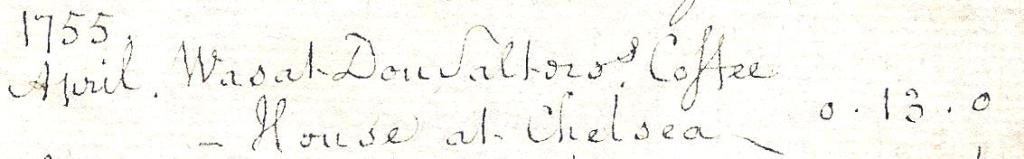 1755.
April. Was at Don Salteros. Coffee
- House at Chelsea 0.13.0